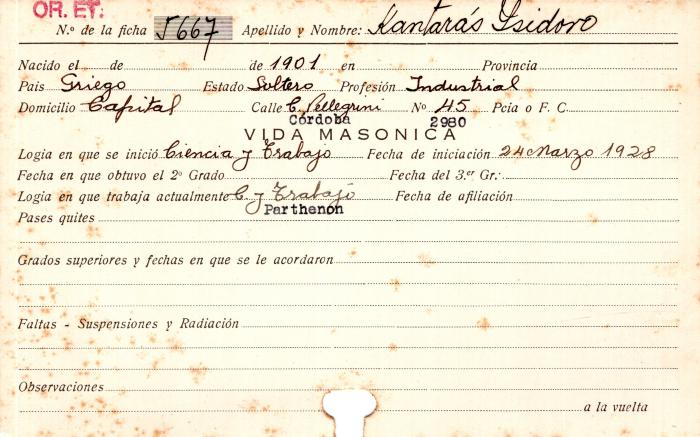 OR. ET.
N.º de la ficha 5667 Apellido y Nombre: Kantarás Isidoro
Nacido el de de 1901 en Provincia
Pais Griego Estado Soltero Profesión Industrial
Domicilio Capital Calle C. Pellegrini Nº 45 Pcia o F. C.
Córdoba 2980
VIDA MASONICA
Logia en que se inició Ciencia y Trabajo Fecha de iniciación 24 Marzo 1928
Fecha en que obtuvo el 2º Grado Fecha del 3.er Gr.:
Logia en que trabaja actualmente C. y Trabajo Fecha de afiliación
Parthenón
Pases quites
Grados superiores y fechas en que se le acordaron
Faltas - Suspensiones y Radiación
Observaciones
a la vuelta